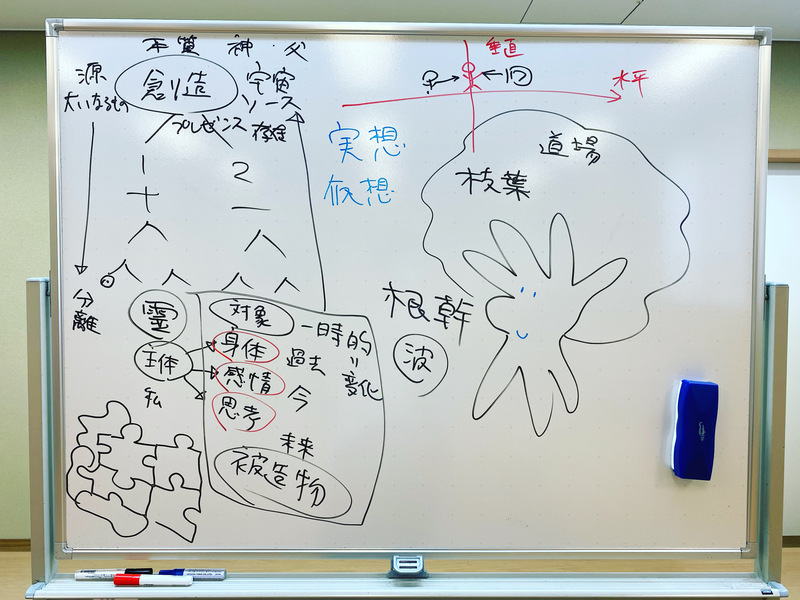 本質 神・父
源
大いなるもの
創造
宇宙
ソース
プレゼンス 存在
1
2
十
一
分離
霊
主体
私
対象
身体
感情
思考
一時的
〃
変化
過去
今
未来
被造物
垂直
水平
実想
仮想
道場
枝葉
根幹
波